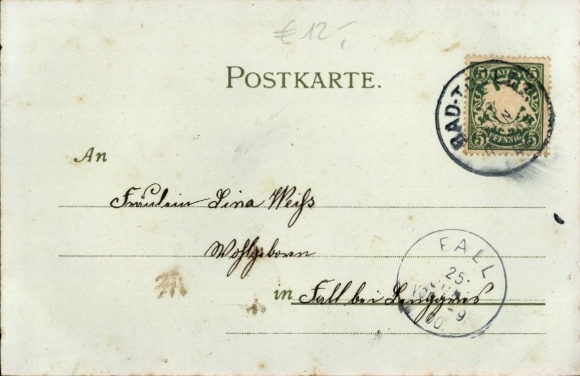 € 12,-
POSTKARTE.
5 5
BAD-TÖLZ
PFENNIG
5 5
An
Fräulein Lina Weiß
Wohlgeboren
in Fall bei Lenggries
FALL
25.
9
00.